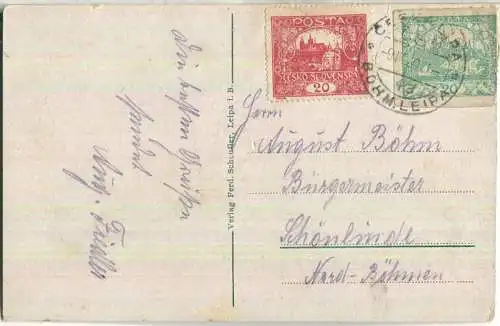 Die besten Grüße
sendet
Aug. Fiedler
Verlag Ferd. Scheufler, Leipa i. B.
POSTA
ČESKO-SLOVENSKÁ
20
BÖHM. LEIPA
Herrn
August Böhm
Bürgermeister
Schönlinde
Nord-Böhmen